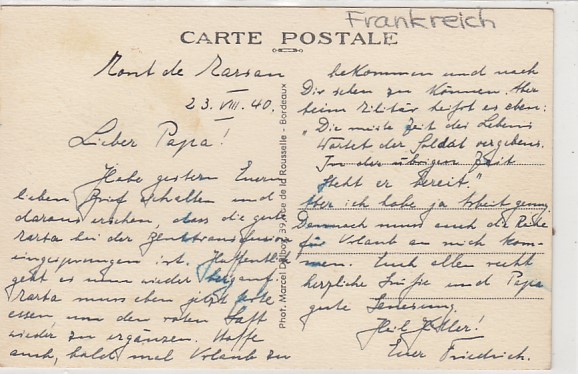 Frankreich
CARTE POSTALE
Mont de Marsan
23. VIII. 40.
Lieber Papa!
Habe gestern Euern
lieben Brief erhalten und
daraus ersehen dass die gute
bei der Bluttransfusion
eingesprungen ist. Hoffentlich
geht es nun wieder bergauf.
muss eben jetzt
essen um den roten Saft
wieder zu ergänzen. Hoffe
auch, bald mal Urlaub zu
bekommen und nach
Dir sehen zu können. Aber
beim Militär heißt es eben:
"Die meiste Zeit des Lebens
Wartet der Soldat vergebens.
In der übrigen Zeit
steht er bereit."
Aber ich habe ja Arbeit genug.
Demnach muss auch die Reihe
für Urlaub an mich kom-
men. Euch allen recht
herzliche Grüße und Papa
gute Genesung.
Heil Hitler!
Euer Friedrich.
Phot. Marcel Delboy, 39, Rue de la Rousselle - Bordeaux